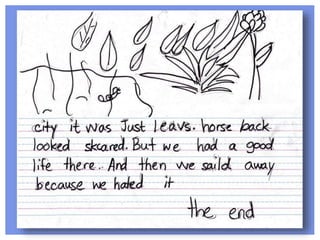 city it was Just Leavs. horse back
looked skared. But we had a good
life there. And then we saild away
because we hated it
the end